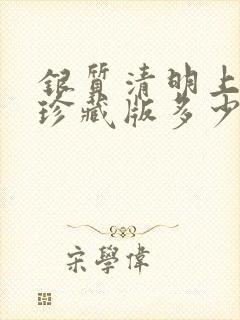 銀質清明上
珍藏版多少
宋學偉